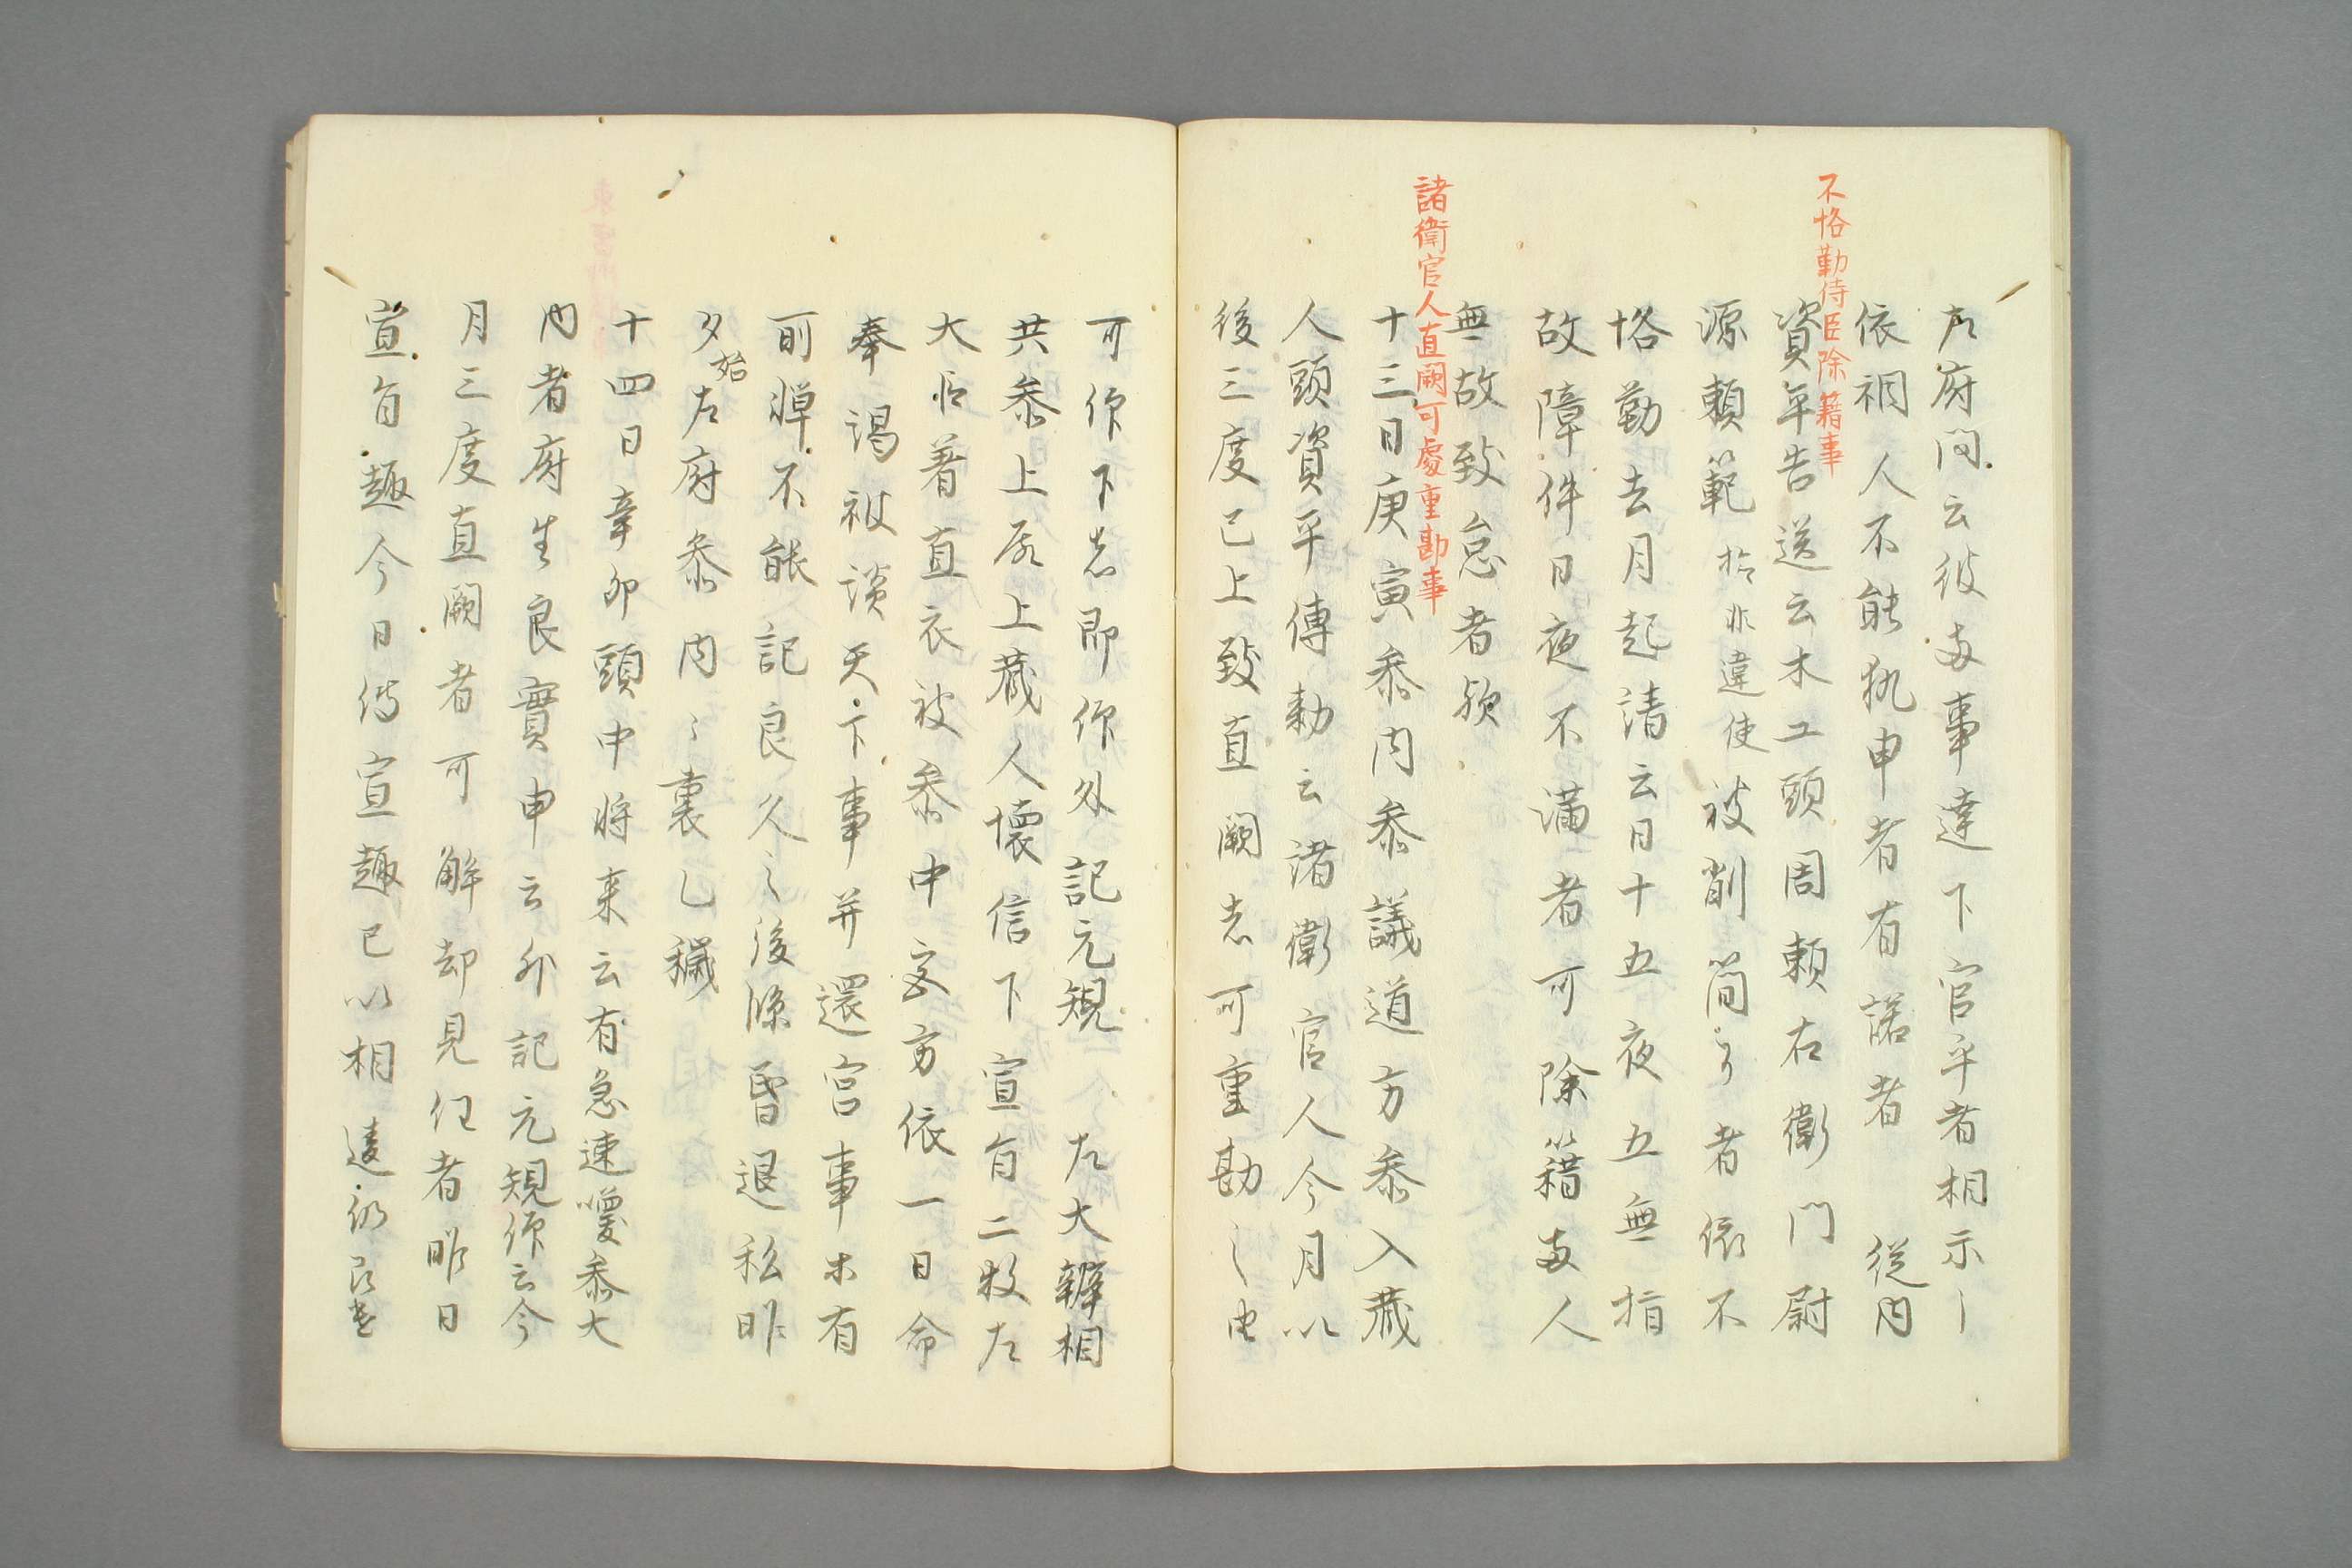 不恪勤侍臣除籍事
諸衛官人直闕可處重勘事
左府問云彼両事達下官乎者相示
依祠人不能執申者有諾者 従内
資平告送云木工頭周頼右衛門尉
源頼範被削簡了者依不
恪勤去月起請云日十五夜五無指
故障件日夜不満者可除籍両人
無故致怠者欤
十三日庚寅参内参議道方参入蔵
人頭資平傳勅云諸衛官人今月以
後三度已上致直闕者可重勘之由
可仰下者即仰外記元規 左大辨相
共参上居上蔵人懐信下宣旨二枚左
大臣着直衣被参中宮方依一日命
奉謁被談天下事并還宮事木有
所憚不能記良久之後臨昏退私昨
夕始左府参内ミ裏乙穢
十四日辛卯頭中将来云有急速參大
内者府生良實申云外記元規仰云今
月三度直闕者可解却見任者昨日
宣旨趣今日傳宣趣已以相違仍